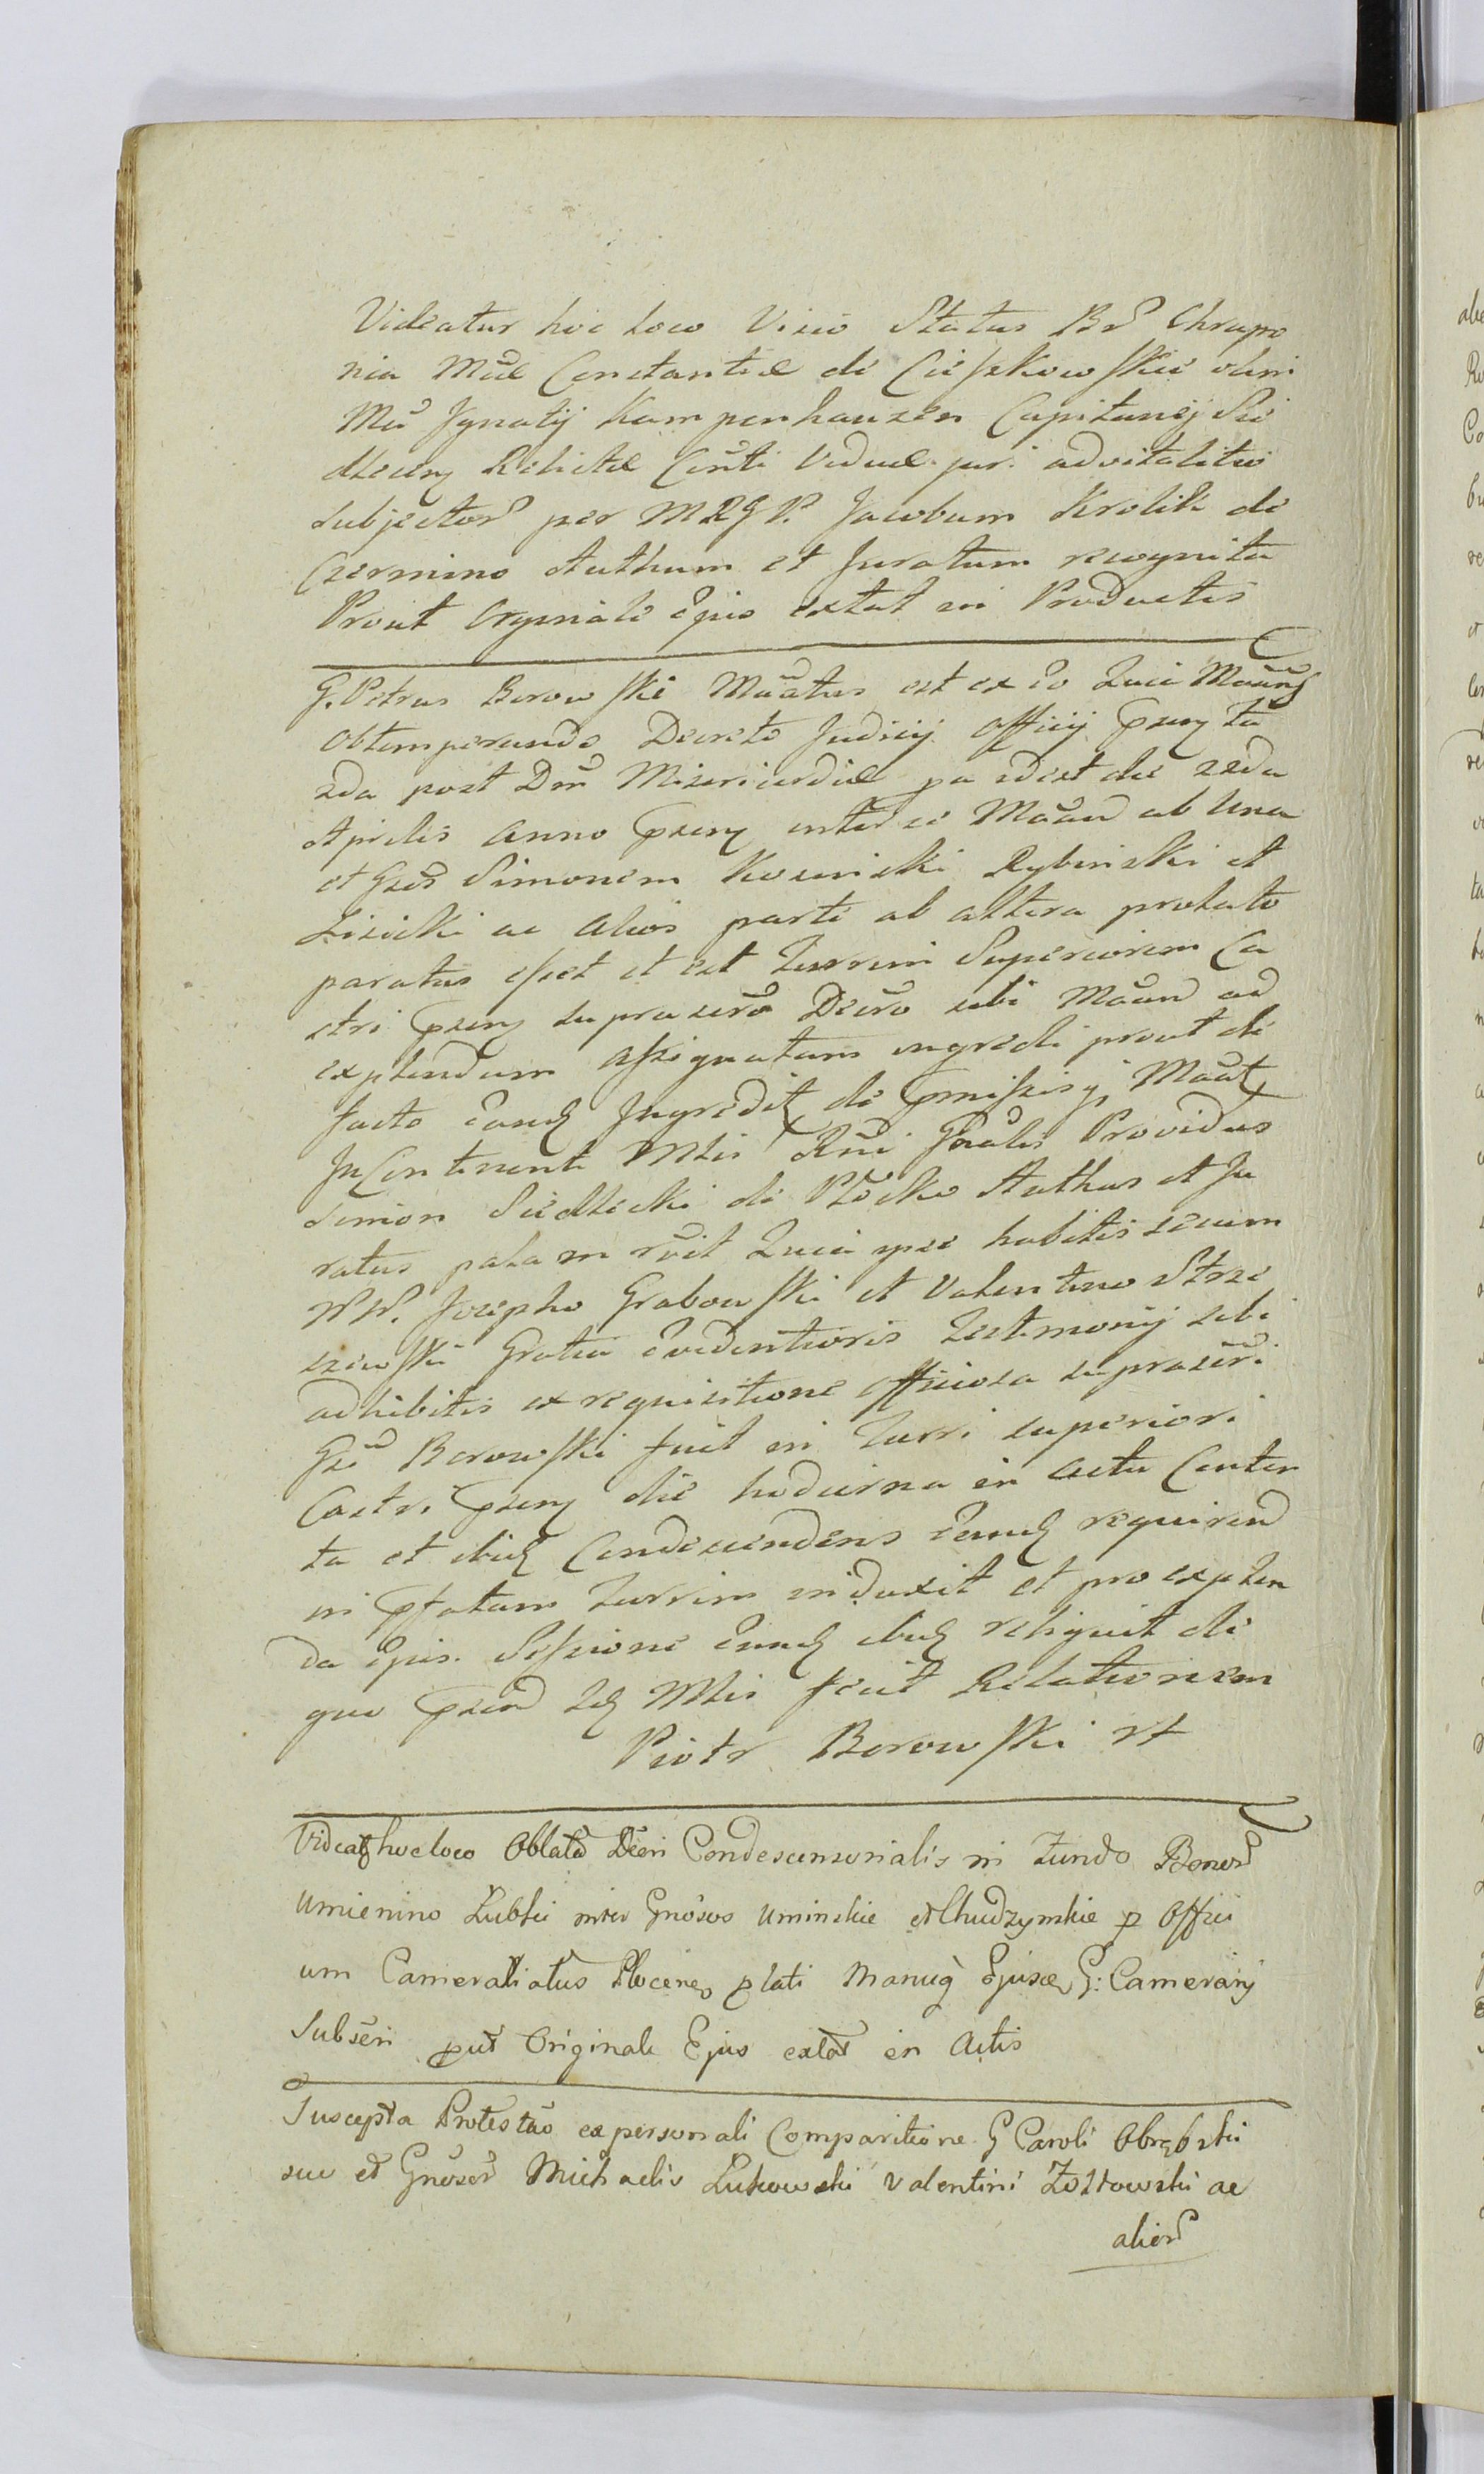 Videatur hoc loco Visio Status Br Chrapo
nia Mae Constantiae de Cieszkowskie olim
Mci Ignatij Kampenhauzen Capitanej Sie
dlecen Relictae Consti Viduae juri advitalitio
subjector per MRGP. Jacobum Krolik de
Czermino Authum et Juratum recognita
Prout Orginale Ejus extat in Productis
G. Petrus Borowski Manatus est ex eo Quia Manans
obtemperando Decreto Judicij Officij Psens ta
zda post Dm Misericordiae pa idest die 22da
Aprilis Anno Psens inter se Manan ab Una
et Gsos Simonem Kosinski Rybinski et
Lisicki ac alios parte ab altera prolato
paratus esset et est Turrim Superiorem Ca
stri Psens suprascro Decro sibi Manan ad
explendum assignatam ingredi prout de
facto eandem Ingredit de Pmissis Manat
In Continenti Mtis Rni Gnalis Providus
Simon Siedlecki de Plocko Authus et Ju
ratus palam rcit Quia ipse habitis secum
NN. Josepho Grabowski et Valentino Strze
szewski Gratia Evidentioris Testimonij sibi
adhibitis ex requisitione officiosa suprascri
Gsi Borowski fuit in Turri superiori
Castri Psens die hodierna in actu Conten
ta et ibid Condescendens eund requirend
in Pfatam Turrim induxit et pro explen
da Ejus Sessione Eund ibid reliquit de
quo Psend sq Mtis fecit Relationem
Piotr Borowski
Videat hoc loco Oblata Decri Condescensorialis in Fundo Bonor
Umienino Łubki inter Gnosos Uminskie et Chudzynskie p Offici
um Cameratiatus Plocens plati Manuq Ejusd G: Camerarij
Subscri put Originale Ejus extat in Actis
Suscepta Protestao ex personali Comparitione G Caroli Obrębski
suo et Gnosor Michaelis Łukowski Valentini Zołtowski ac
alior